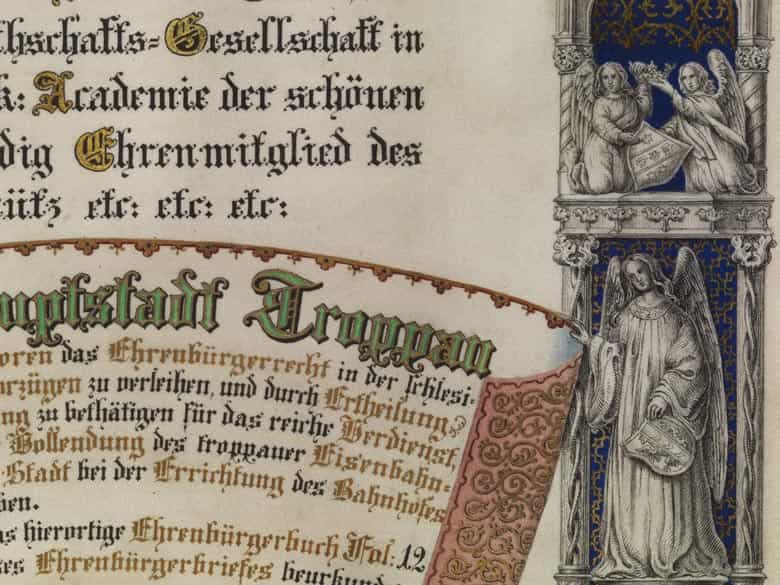 thschafts-Gesellschaft in
k: Academie der schönen
dig Ehrenmitglied des
tütz etc: etc: etc:
uptstadt Troppau
oren das Ehrenbürgerrecht in der schlesi-
orzügen zu verleihen, und durch Ertheilung
ng zu bethätigen für das reiche Verdienst,
Vollendung des troppauer Eisenbahn-
Stadt bei der Errichtung des Bahnhofes
ben.
as hierortige Ehrenbürgerbuch Fol: 12
ses Ehrenbürgerbriefes beurkund